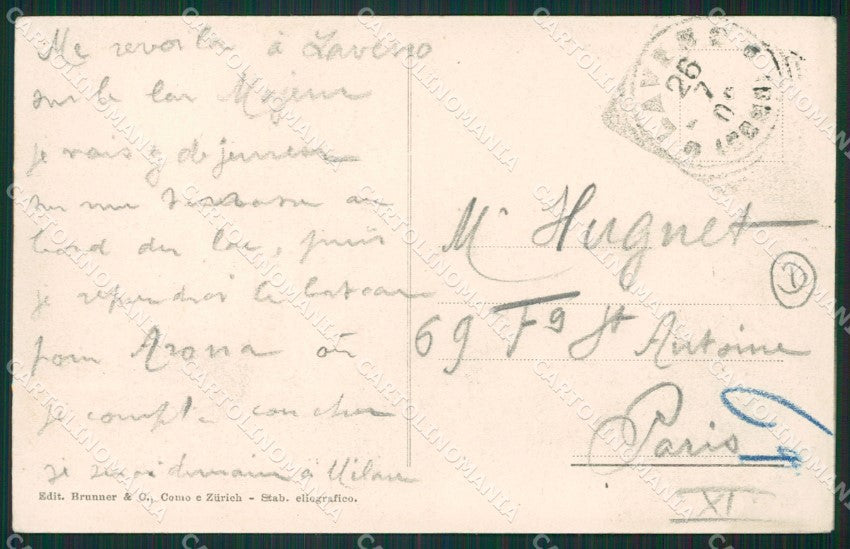 Me revoila à Laveno
sur le lac Majeur
je vais y dejeuner
sur une terrasse au
bord du lac, puis
je reprendrai le bateau
pour Arona où
je compte coucher
je serai demain à Milan
Edit. Brunner & C., Como e Zürich - Stab. eliografico.
26
7
Mr Hugnet
69 Fg St Antoine
Paris
XI
CARTOLINOMANIA